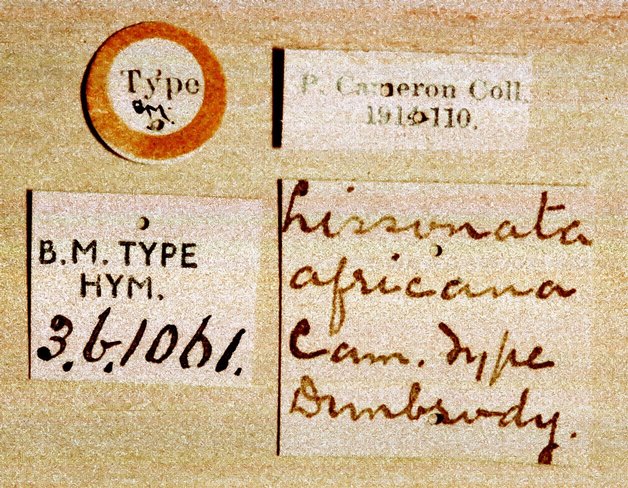 Type
B.M.
P. Cameron Coll.
1914-110.
B.M. TYPE
HYM.
3.b.1061.
Lissonata
africana
Cam. Type
Dunbrody.